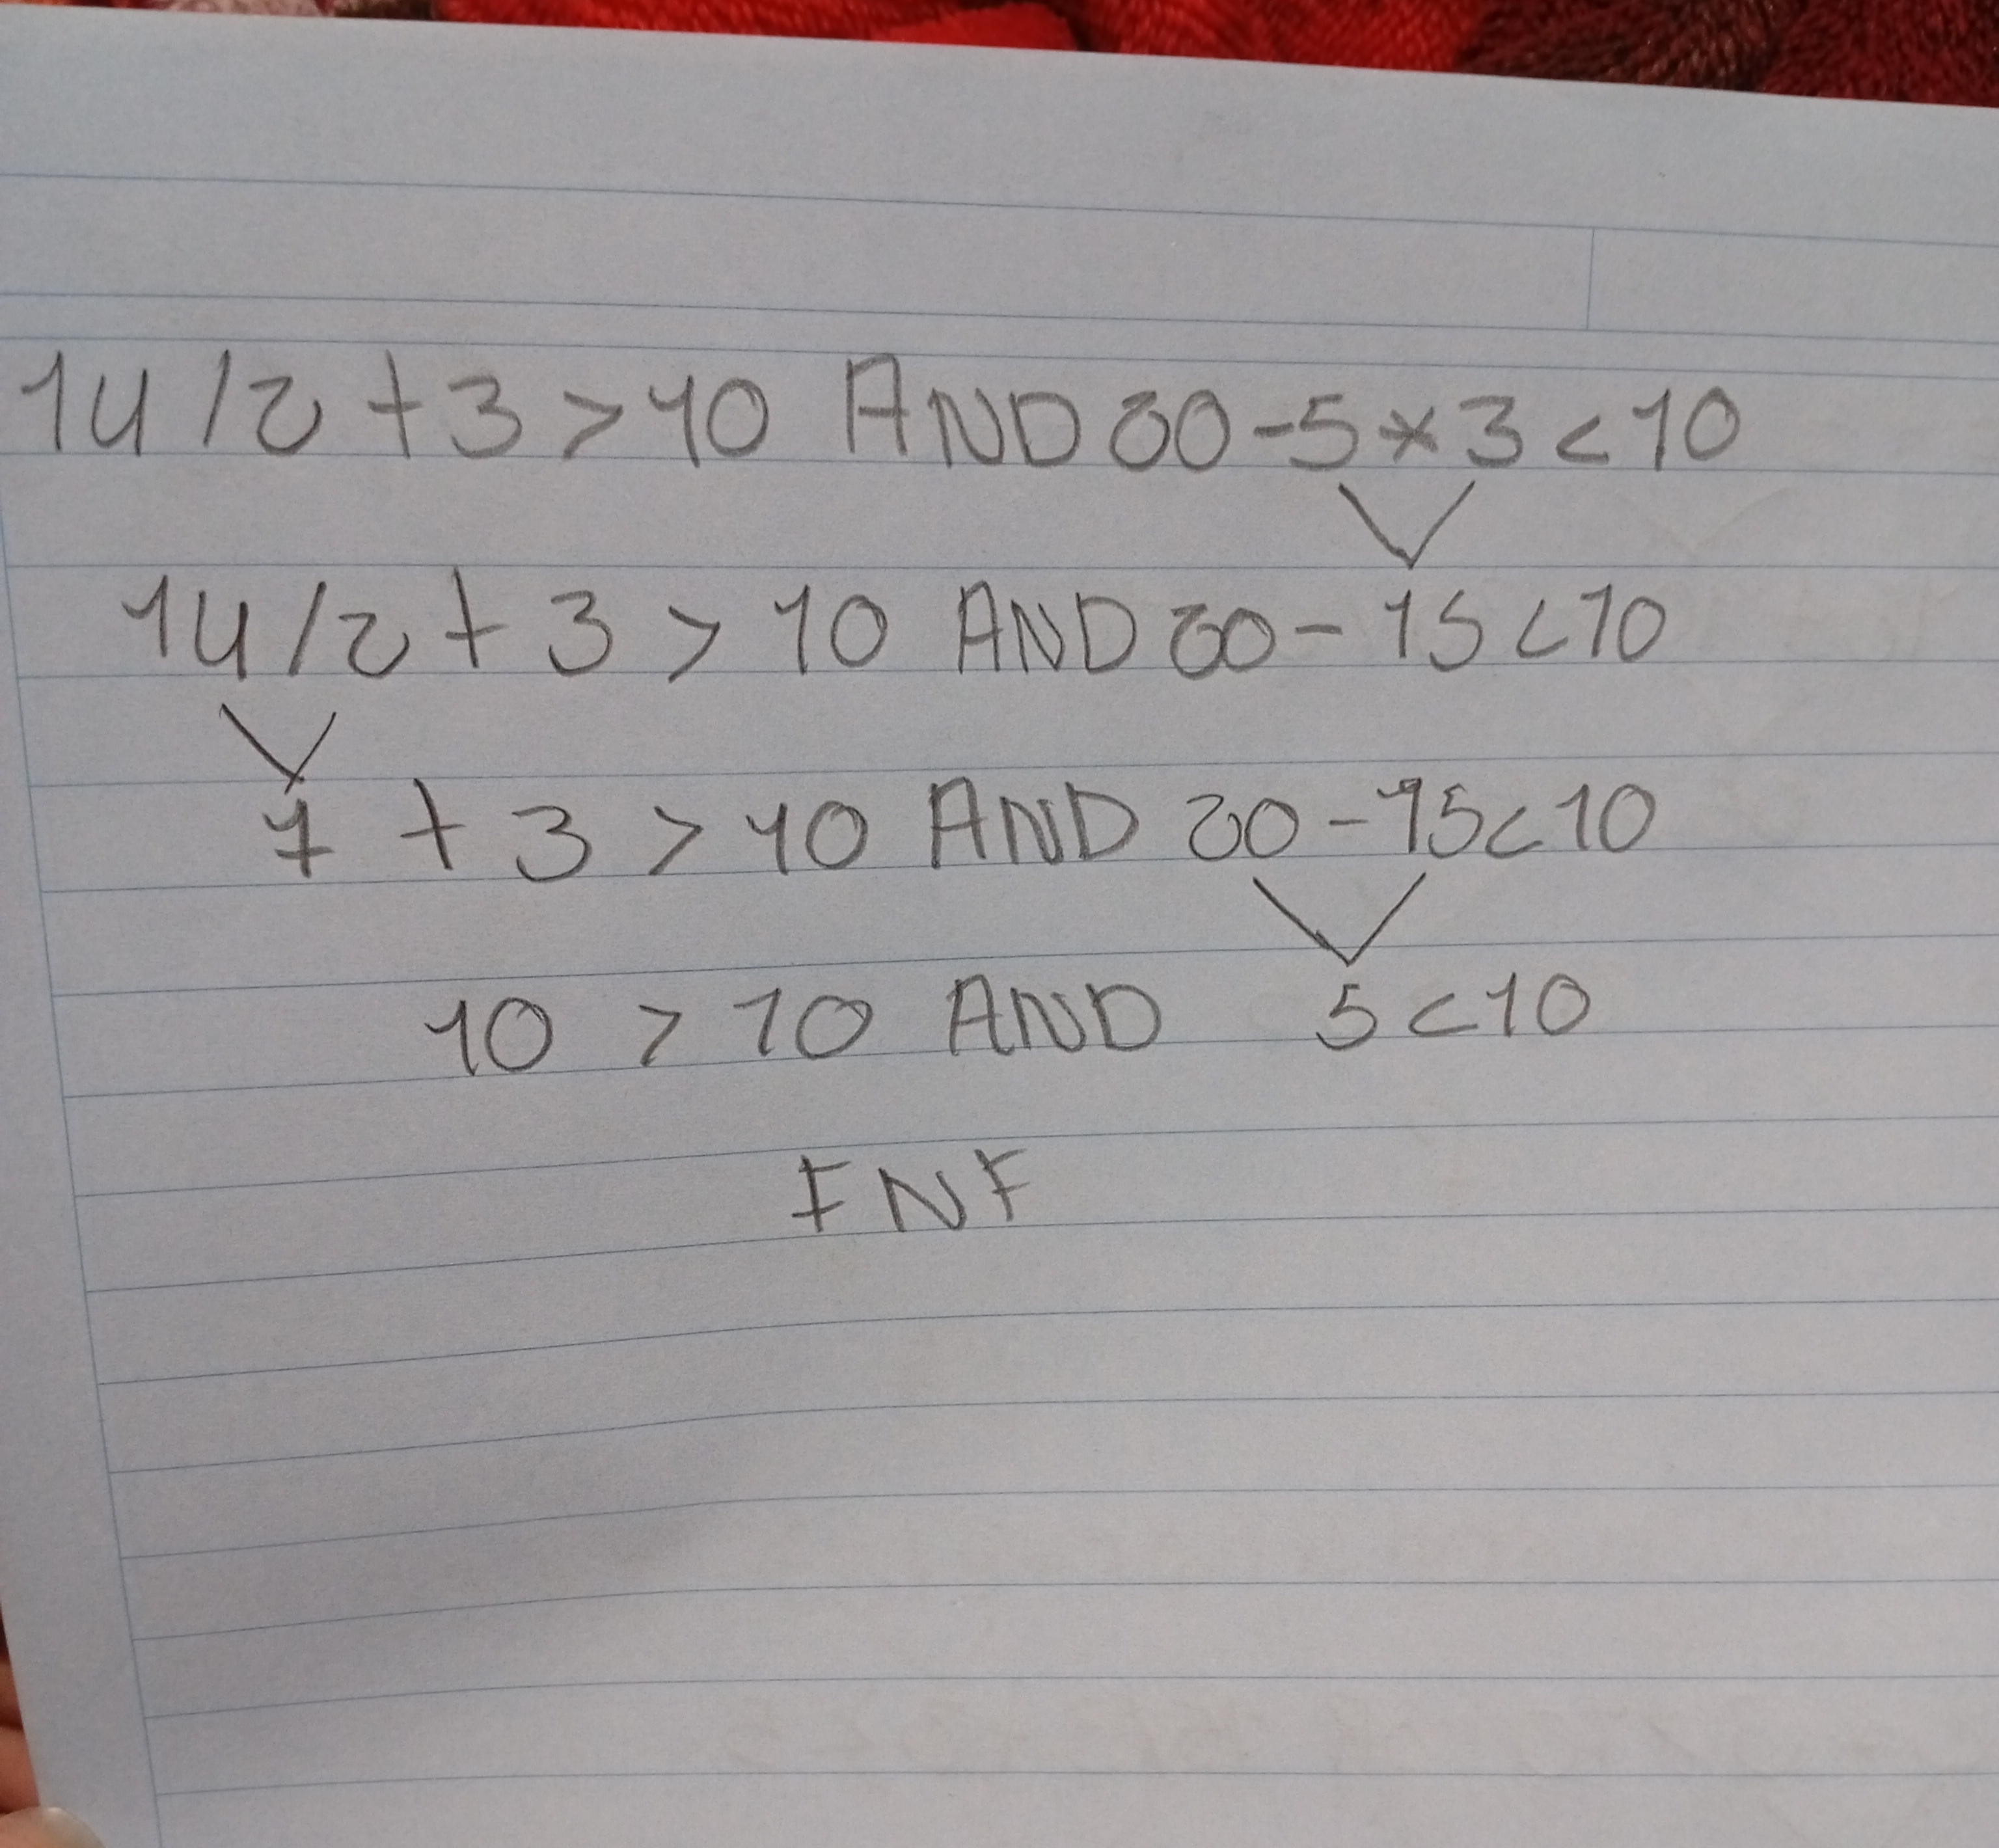 14 / 2 + 3 > 10 AND 20 - 5 * 3 < 10
14 / 2 + 3 > 10 AND 20 - 15 < 10
7 + 3 > 10 AND 20 - 15 < 10
10 > 10 AND 5 < 10
FNF